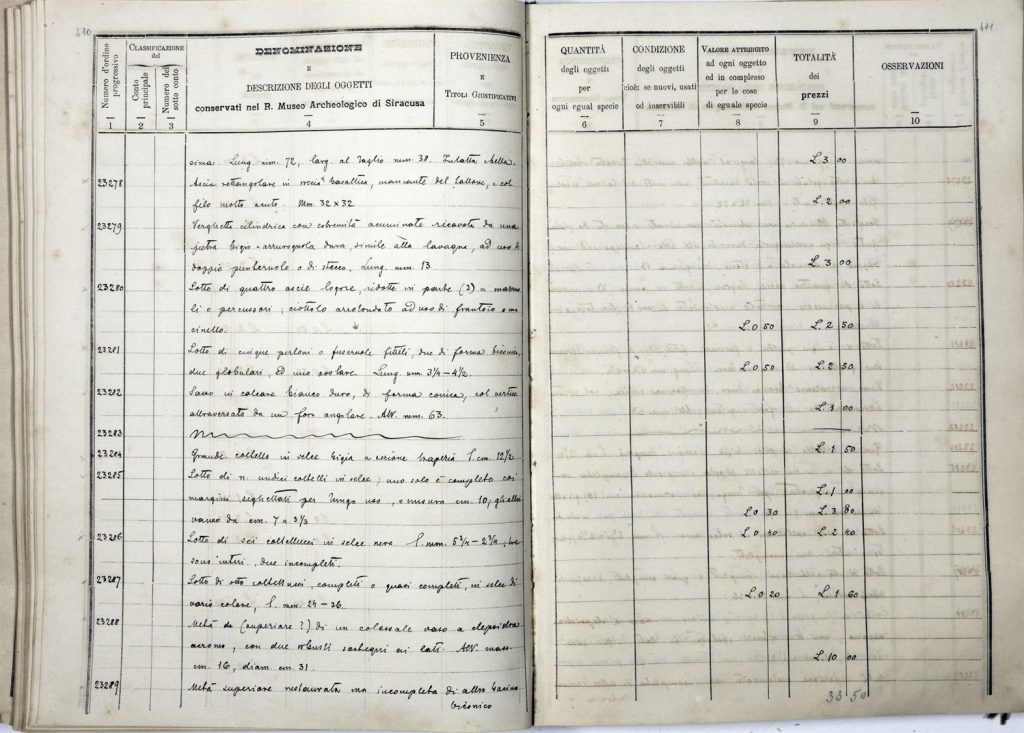 410
Numero d'ordine progressivo
CLASSIFICAZIONE
del
Conto principale
Numero del sotto conto
DENOMINAZIONE
E
DESCRIZIONE DEGLI OGGETTI
conservati nel R. Museo Archeologico di Siracusa
PROVENIENZA
E
TITOLI GIUSTIFICATIVI
1 2 3 4 5
sima. Lung. mm. 72, larg. al taglio mm. 38.
23278 Ascia rettangolare in roccia basaltica, mancante del tallone, e col
filo molto acuto. Mm. 32 x 32
23279 Verghetta cilindrica con estremità acuminate ricavata da una
pietra bigio-arrurognola dura, simile alla lavagna, ad uso di
doppio punteruolo o di stecco. Lung. mm. 13
23280 Lotto di quattro ascie logore, ridotte in parte (3) a martel
li o percussori; ciottolo arrotondato ad uso di frantoio o ma
cinello.
23281 Lotto di cinque perloni o fuseruole fittili, due di forma biconica,
due globulari, ed uno ovolare. Lung. mm. 3¼-4½.
23282 Sasso in calcare bianco duro, di forma conica, col vertice
attraversato da un foro angolare. Alt. mm. 63.
23283
23284 Grande coltello in selce bigia a sezione trapezia l. cm. 12½.
23285 Lotto di n. undici coltelli in selce; uno solo è completo coi
margini seghettati per lungo uso, e misura cm. 10; gli altri
vanno da cm. 7 a 3⅓
23286 Lotto di sei coltellucci in selce nera l. mm. 5¾-2¾; tre
sono interi, due incompleti.
23287 Lotto di otto coltellinesi, completi o quasi completi, in selce di
vario colore, l. mm. 24-36.
23288 Metà (superiore?) di un colossale vaso a clepsidra
acromo, con due robusti sostegni ai lati. Alt. mass.
cm. 16, diam. cm. 31.
23289 Metà superiore restaurata ma incompleta di altro bacino
biconico
411
QUANTITÀ
degli oggetti
per
ogni egual specie
CONDIZIONE
degli oggetti
cioè: se nuovi, usati
od inservibili
VALORE ATTRIBUITO
ad ogni oggetto
ed in complesso
per le cose
di eguale specie
TOTALITÀ
dei
prezzi
OSSERVAZIONI
6 7 8 9 10
L. 3 00
L. 2 00
L. 3 00
L. 0 50 L. 2 50
L. 0 50 L. 2 50
L. 1 00
L. 1 50
L. 1 00
L. 0 30 L. 3 80
L. 0 40 L. 2 40
L. 0 20 L. 1 60
L. 10 00
33.50